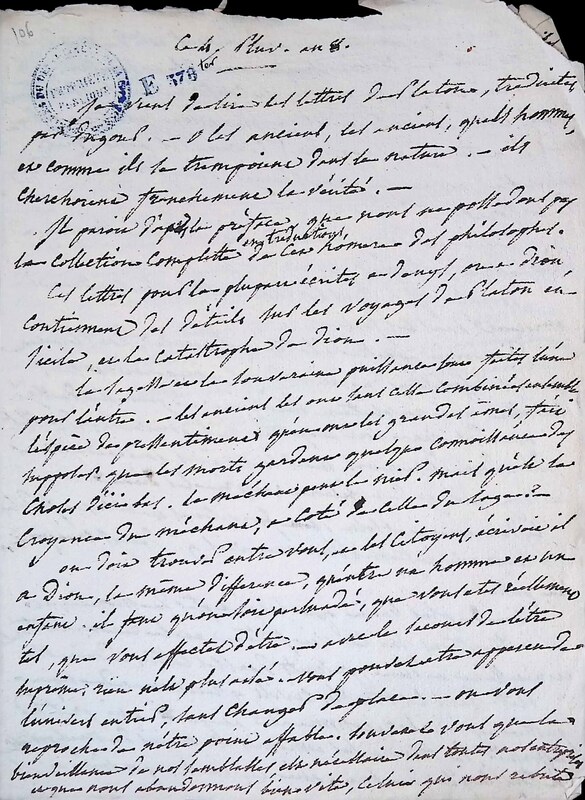 106
Ce 4 Pluv. an 8.
E 376 ter
je viens de lire les lettres de Platon, traduites
par Dugour. — O les anciens, les anciens, quels hommes,
et comme ils se trempoient dans la nature. — ils
cherchoient franchement la vérité. —
Il paroit d'après la préface, que nous ne possédons pas
la Collection Complette en traduction, de cet homere des philosophes.
Ces lettres pour la plupart écrites a denys, ou a dion
contiennent des détails sur les voyages de Platon en
Sicile, et la catastrophe de dion. —
la sagesse et la souveraine puissance sont faites l'une
pour l'autre. — les anciens les ont sans cesse combinées ensemble
l'espèce de pressentiment qu'ont les grandes âmes, fait
supposer que les morts gardent quelque connoissance des
choses d'ici bas. le méchant pourra le nier. mais qu'est la
Croyance du méchant, a coté de celle du sage? —
on doit trouver entre vous, et les Citoyens, écrivoit il
a Dion, la même différence, qu'entre un homme et un
enfant. il faut qu'on soit persuadé, que vous etes réellement
tel, que vous affectez d'être. — avec le secours de l'être
suprême rien n'est plus aisé. vous pouvez etre apperçu de
l'univers entier sans changer de place. — on vous
reproche de n'être point affable. souvenez vous que la
bienveillance de nos semblables est nécessaire dans toutes nos entreprises
et que nous abandonnons bien vite, celui qui nous rebute